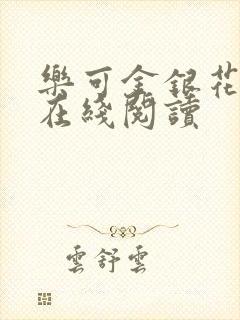 樂可金銀花
在綫閱讀
雲舒雲